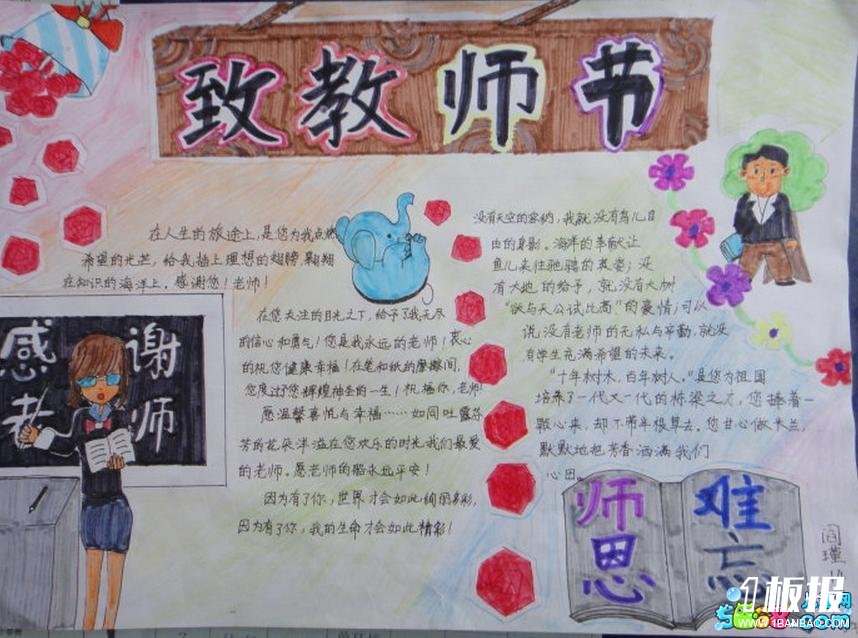 致教师节
在人生的旅途上,是您为我点燃
希望的光芒,给我插上理想的翅膀,翱翔
在知识的海洋上,感谢您!老师!
在您关注的目光之下,给予了我无尽
的信心和勇气!您是我永远的老师!衷心
的祝您健康幸福!在笔和纸的摩擦间,
您度过了您辉煌神圣的一生!祝福你,老师!
愿温馨喜悦与幸福……如同吐露芬
芳的花朵洋溢在您欢乐的时光我们最爱
的老师。愿老师的船永远平安!
因为有了你,世界才会如此绚丽多彩,
因为有了你,我的生命才会如此精彩!
没有天空的容纳,我就没有鸟儿自
由的身影。海洋的奉献让
鱼儿来往驰骋的英姿;没
有大地的给予,就没有大树
“欲与天公试比高”的豪情;可以
说没有老师的无私与辛勤,就没
有学生充满希望的未来。
“十年树木,百年树人。”是您为祖国
培养了一代又一代的栋梁之才,您捧着一
颗心来,却不带半根草去。您甘心做
默默地把芳香洒满我们
心田。
感谢
老师
师恩
难忘
闫瑾
1板报
WWW.1BANBAO.COM